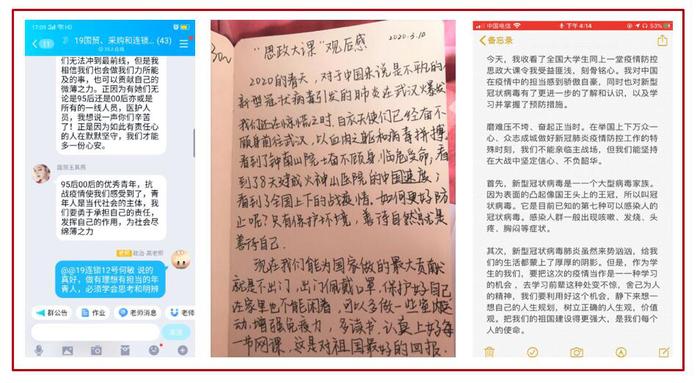 17:05
19国贸、采购和连锁...(43)
们无法冲到最前线，但是我
相信我们也会做我们力所能
及的事，也可以贡献自己的
微薄之力。正因为有她们无
论是95后还是00后亦或是
所有的一线人员，医护人
员，我想说一声你们辛苦
了！正是因为如此有责任心
的人在默默坚守，我们才能
多一份安心。
95后00后的优秀青年，抗
战疫情使我们感受到了，青
年人是当代社会的主体，我
们要勇于承担自己的责任，
发挥自己的作用，为社会尽
绵薄之力
@@19连锁12号何敏 说的
真好，做有理想有担当的年
青人，必须学会思考和明辨
群公告
作业
老师消息
老师
发送
“思政大课”观后感
2020.3.10
2020的春天，对于中国来说是不平凡的
新型冠状病毒引发的肺炎在武汉爆发
我们还在惊慌之时，白衣天使们已经奋不
顾身前往武汉，以血肉之躯和病毒拼搏，
看到了钟南山院士奋不顾身，临危受命，看
到了8天建成火神山医院的中国速度；
看到了全国上下的战疫情。如何更好防
止呢？只有保护环境，善待自然就是
善待自己.
现在我们能为国家做的最大贡献
就是不出门，出门佩戴口罩，保护好自己
在家里也不能闲着，可以多做一些室内运
动，增强免疫力，多读书，认真上好每
一节网课，这是对祖国最好的回报.
中国电信
下午4:14
53%
备忘录
今天，我收看了全国大学生同上一堂疫情防控
思政大课令我受益匪浅，刻骨铭心。我对中国
在疫情中的担当感到骄傲自豪，同时也对新型
冠状病毒有了更进一步的了解和认识，以及学
习并掌握了预防措施。
磨难压不垮、奋起正当时。在举国上下万众一
心、众志成城做好新冠肺炎疫情防控工作的特
殊时刻，我们不能亲临主战场，但我们能坚持
在大战中坚定信心、不负韶华。
首先，新型冠状病毒是一一个大型病毒家族。
因为表面的凸起像国王头上的王冠，所以叫冠
状病毒。它是目前已知的第七种可以感染人的
冠状病毒。感染人群一般出现咳嗽、发烧、头
疼、胸闷等症状。
其次，新型冠状病毒肺炎虽然来势汹汹，给我
们的生活都蒙上了厚厚的阴影。但是，作为学
生的我们，要把这次的疫情当作是一一种学习
的机会，去学习前辈这种处变不惊，舍己为人
的精神，我们要利用好这个机会，静下来想一
想自己的人生规划，树立正确的人生观，价值
观。把我们的祖国建设得更强大，是我们每个
人的使命。